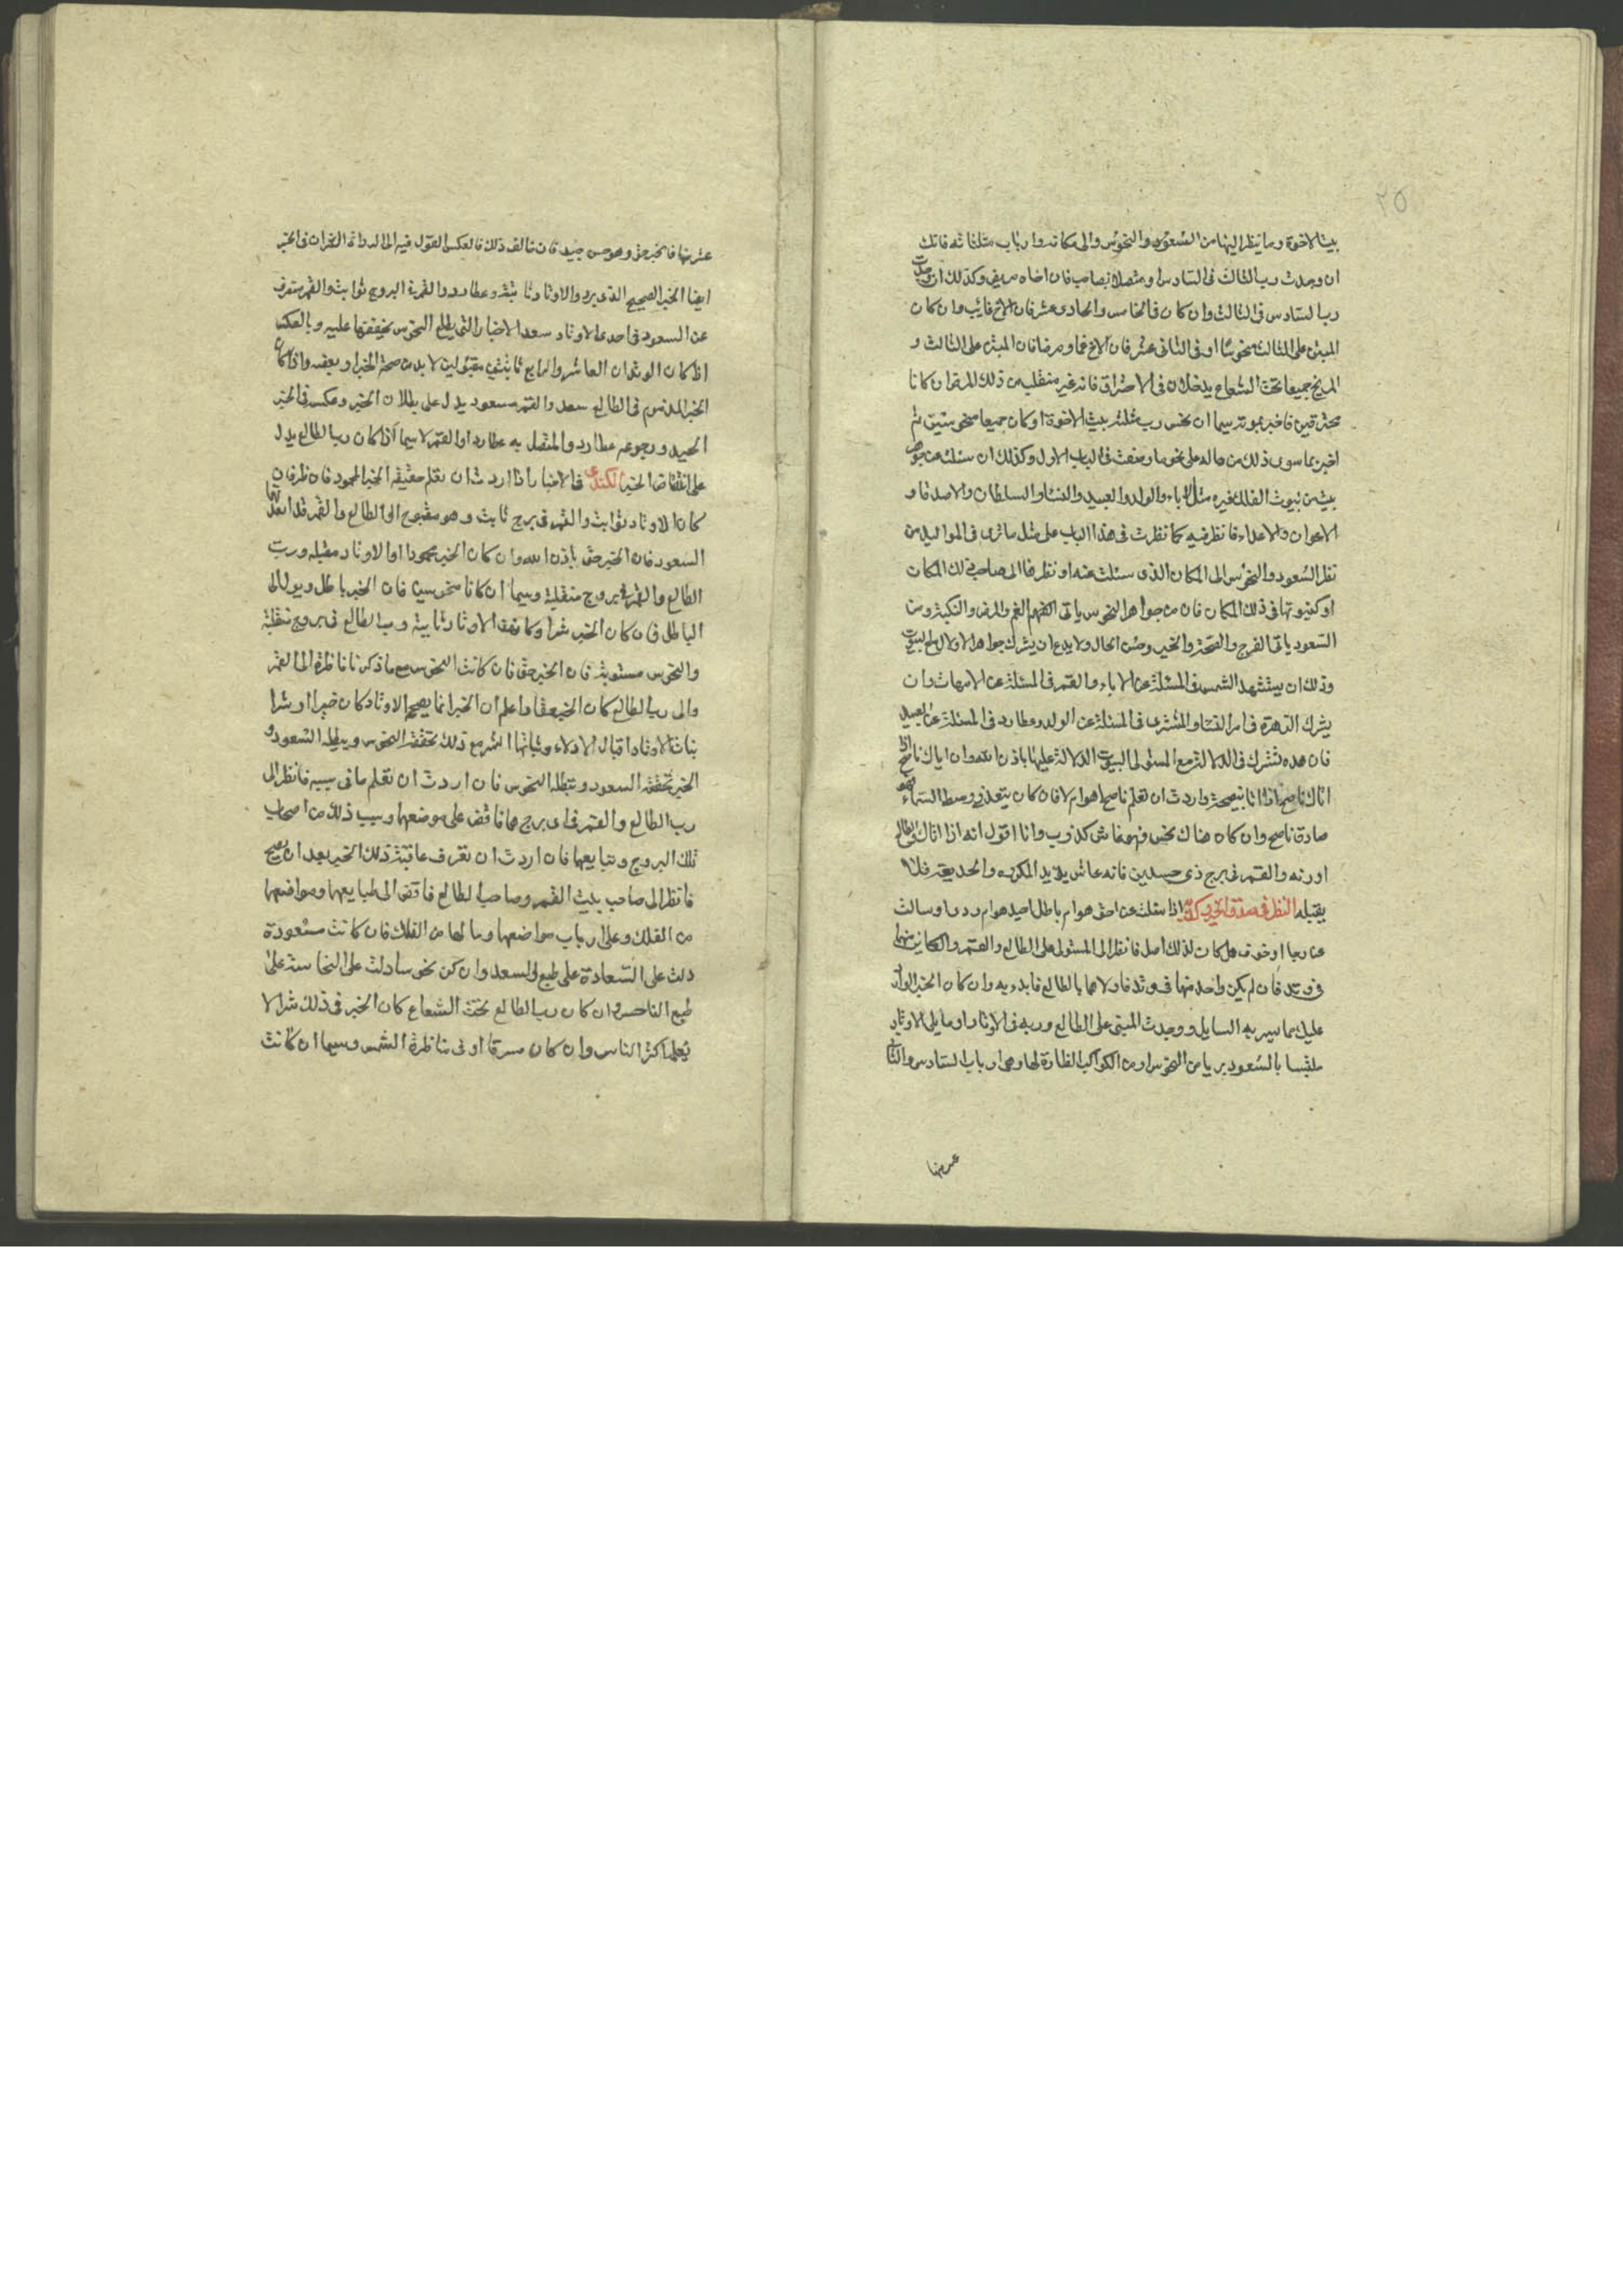 ٢٥
بيت الاخوة وما ينظر اليها من السعود والنحوس والى مكانه وارباب مثلثاته فانك
ان وجدت رب الثالث فى السادس او متصلا بصاحبه فان اخاه مريض وكذلك ان وجدت
رب السادس فى الثالث وان كان فى الخامس والحادى عشر فان الاخ غايب وان كان
المبتز على الثالث منحوسا او فى الثانى عشر فان الاخ مغما ومرضا فان المبتز على الثالث و
المريخ جميعا تحت الشعاع يدخلان فى الاحتراق فانه غير منفلت من ذلك المرض وان كانا
محترقين فاخبر بموته سيما ان نحس رب مثلثة بيت الاخوة او كان جميعا منحوستين ثم
اخبر بما سوى ذلك من حاله على نحو ما وصفت فى الباب الاول وكذلك ان سئلت عن
بيت من بيوت الفلك غيره مثل الاباء والولد والعبيد والنساء والسلطان والاصدقاء و
الاعوان والاعداء فانظر فيه كما نظرت فى هذا الباب على مثل ما ترى فى المواليد من
نظر السعود والنحوس الى المكان الذى سئلت عنه او نظرها الى صاحب ذلك المكان
او كينونتها فى ذلك المكان فان من جواهر النحوس ياتى الغم والمرض والنكبة ومن
السعود ياتى الفرج والصحة والخير وحسن الحال ولا يدع ان يشرك جواهر الادلا مع البيوت
وذلك ان يستشهد الشمس فى المسئلة عن الاباء والقمر فى المسئلة عن الامهات وان
يشرك الزهرة فى امر النساء والمشترى فى المسئلة عن الولد وعطارد فى المسئلة عن العبيد
فان هذه تشترك فى الدلالة مع المستولى البيوت الدلالة عليها باذن الله وان اتاك ناصح
اتاك ناصح بنصيحة واردت ان تعلم ناصح هو ام لا فان كان سعد فى وسط السماء فهو
صادق ناصح وان كان هناك نحس فهو غاش كذوب وانا اقول انه اذا اتاك
اورنه والقمر فى برج ذى جسدين فانه غاش يريد المكر والخديعة فلا
يقبله النظر فى صدق الخبر وكذبه اذا سئلت عن احق هو ام باطل اجيد هو ام ردى او سالت
عن رجا او خوف هل كان لذلك اصل فانظر الى المستولى على الطالع والقمر والكاين منهما
فى وتد فان لم يكن واحد منهما فى وتد فاولاهما بالطالع فابدء به وان كان الخبر الوارد
عليك مما يسر به السايل ووجدت المبتز على الطالع وربه فى الاوتاد او ما يلى الاوتاد
ملتبسا بالسعود بريا من النحوس ومن الكواكب الضارة لها وهى ارباب السادس والثانى
عشر منها
عشر منها فالخبر حق وهو حسن جيد فان خالف ذلك فالعكس القول فيه الى
ايضا الخبر الصحيح الذى يرد والاوتاد ثابتة وعطارد والقمر فى البروج ثوابت والقمر منصرف
عن السعود فى احدى الاوتاد سعد الاخبار التى يطلع النحوس بحقيقتها عليه وبالعكس
اذ كان الوتدان العاشر والرابع ثابتين مقبولين لا بد من صحة الخبر او بعضه واذا كان
الخبر المذموم فى الطالع سعد والقمر مسعود يدل على بطلان الخبر وعكسه فى الخبر
الجيد ورجوعه عطارد والمتصل به عطارد او القمر لا سيما اذا كان رب الطالع يدل
على انتقاض الخبر الكندى فى الاخبار اذا اردت ان تعلم حقيقة الخبر المحمود فان
كان الاوتاد ثوابت والقمر فى برج ثابت وهو مقبول الى الطالع والقمر
السعود فان الخبر حق باذن الله وان كان الخبر محمودا او الاوتاد مقبلة ورب
الطالع والقمر فى بروج منقلبة وسيما ان كانا منحوسين فان الخبر باطل ويول الى
الباطل فان كان الخبر شرا وكانت الاوتاد ثابتة ورب الطالع فى بروج منقلبة
والنحوس مستولية فان الخبر حق فان كانت النحوس مع ما ذكرنا ناظرة الى القمر
والى رب الطالع كان الخبر حقا واعلم ان الخبر انما يصحح الاوتاد كان خيرا او شرا
بثبات الاوتاد اقبال الادلاء وثباتها الشر مع ذلك تحققه النحوس ويبطله السعود و
الخير تحققه السعود وتبطله النحوس فان اردت ان تعلم ما فى سببه فانظر الى
رب الطالع والقمر فى اى برج هما فاقض على موضعهما وسبب ذلك من اصحاب
تلك البروج وتتابعها فان اردت ان تعرف عاقبة ذلك الخبر بعد ان يصح
فانظر الى صاحب بيت القمر وصاحب الطالع فاقض الى طبايعهما ومواضعهما
من الفلك وعلى ارباب مواضعهما وما لها من الفلك فان كانت مسعودة
دلت على السعادة على طبع السعد وان كن نحوسا دلت على النحاسة على
طبع الناحس وان كان رب الطالع تحت الشعاع كان الخبر فى ذلك شرا لا
يعلمه اكثر الناس وان كان مسرقا او فى مناظرة الشمس وسيما ان كانت